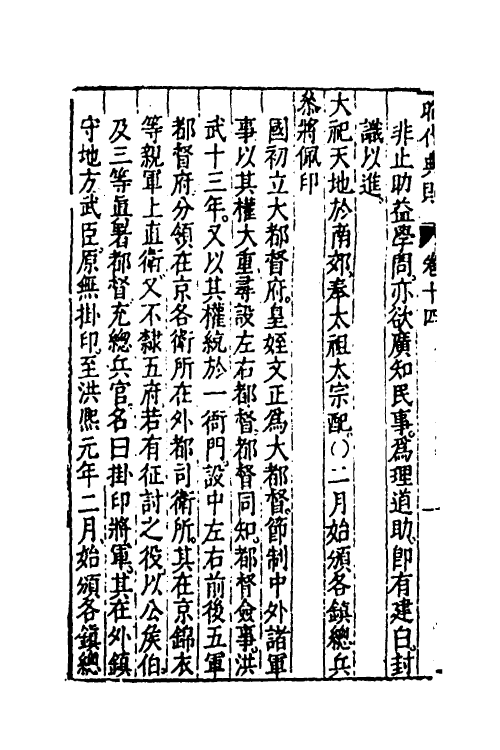 昭代典則 卷十四
非止助益學問。亦欲廣知民事。爲理道助。卽有建白。封
識以進。
大祀天地於南郊。奉太祖太宗配。○二月始頒各鎮總兵
叅將佩印
國初立大都督府。皇姪文正爲大都督。節制中外諸軍
事以其權大重。尋設左右都督。都督同知。都督僉事。洪
武十三年。又以其權統於一衙門。設中左右前後五軍
都督府分領在京各衛所在外都司衛所。其在京錦衣
等親軍上直衛。又不隸五府若有征討之役以公侯伯。
及三等眞署都督充總兵官。名曰掛印將軍。其在外鎮
守地方武臣。原無掛印。至洪熙元年二月。始頒各鎮總